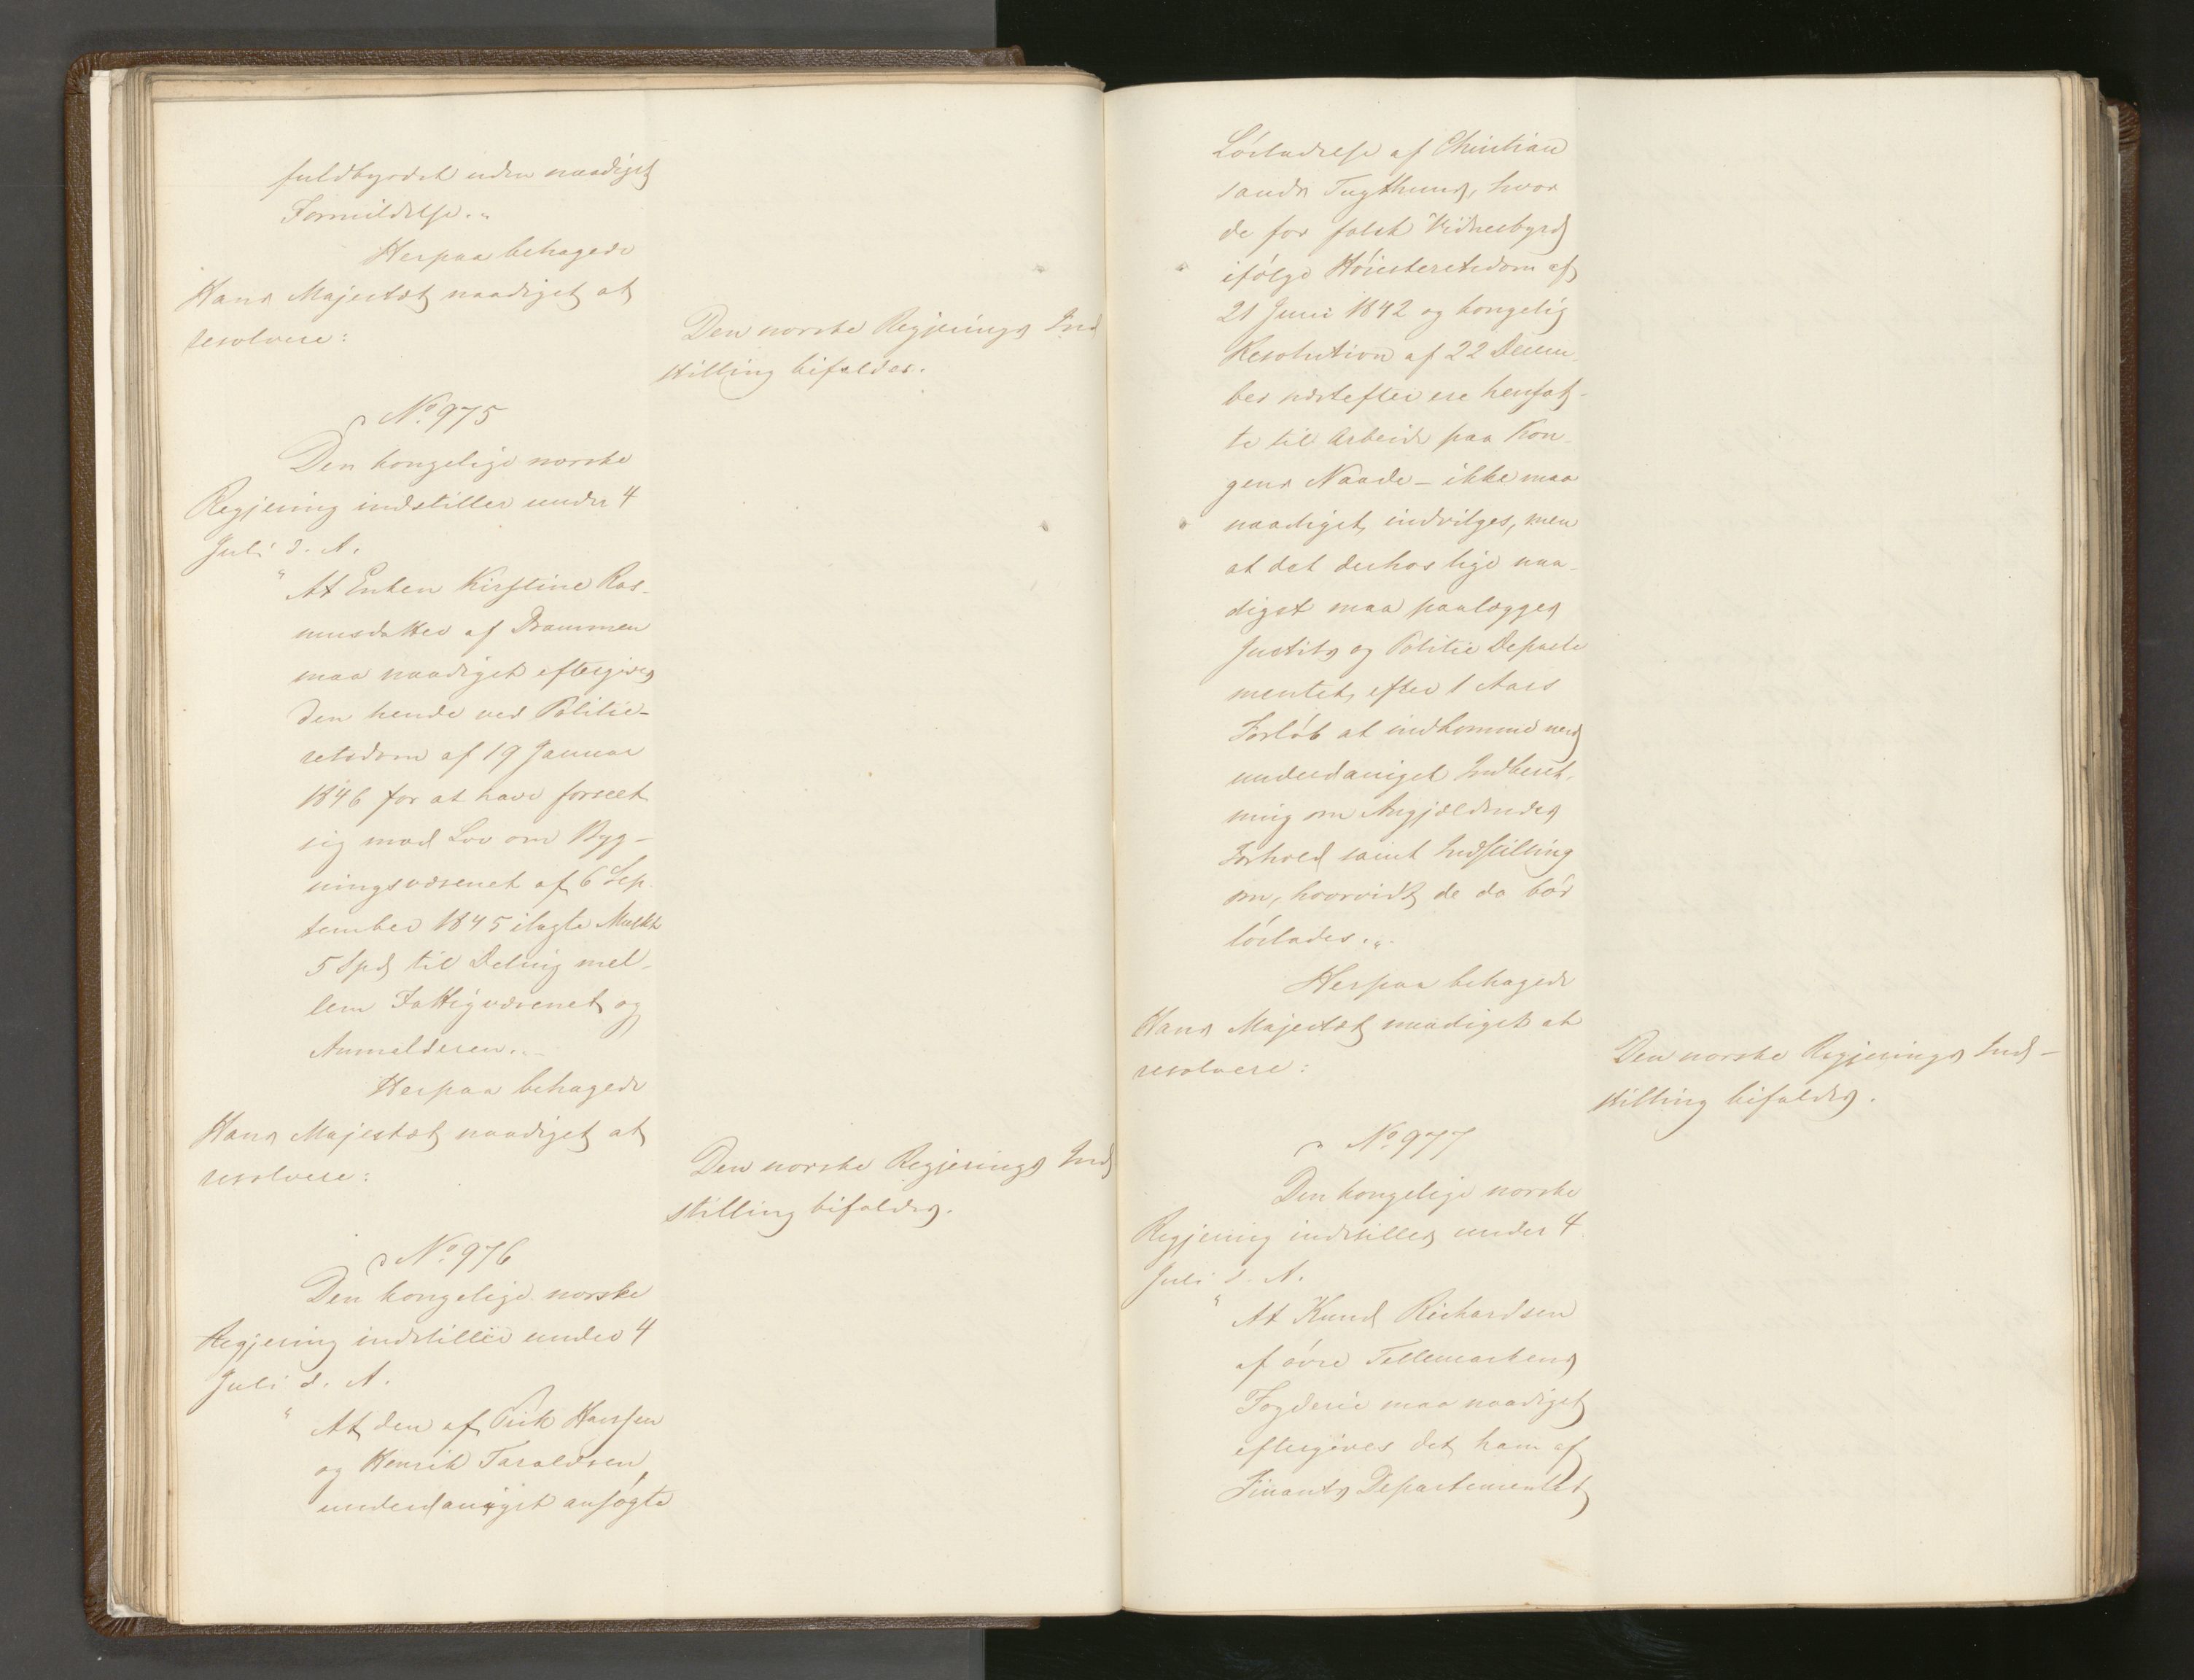 fuldbyrdet uden naadigst
Formildelse."
Herpaa behagede
Hans Majestæt naadigst at
resolvere:
Den norske Regjerings Ind
stilling bifaldes.
No. 975
Den kongelige norske
Regjering indstiller under 4
Juli d. A.
"At Enken Kirstine Ras-
musdatter af Drammen
maa naadigst eftergives
den hende ved Politie-
retsdom af 19 Januar
1846 for at have forseet
sig mod Lov om Byg-
ningsvæsenet af 6 Sep
tember 1845 ilagte Mulkt
5 Spd til Deling mel-
lem Fattigvæsenet og
Anmelderen."
Herpaa behagede
Hans Majestæt naadigst at
resolvere:
Den norske Regjerings Ind
stilling bifaldes.
No. 976
Den kongelige norske
Regjering indstiller under 4
Juli d. A.
"At den af Erik Hansen
og Henrik Taraldsen
underdanigst ansøgte
Løsladelse af Christian
sands Tugthuus, hvor
de for falsk Vidnesbyrd
ifølge Høiesteretsdom af
21 Juni 1842 og kongelig
Resolution af 22 Decem-
ber næstefter ere hensat-
te til Arbeide paa Kon-
gens Naade – ikke maa
naadigst indvilges, men
at det derhos lige naa-
digst maa paalægges
Justits og Politie Departe
mentet, efter 1 Aars
Forløb at indkomme med
underdanigst Indberet-
ning om Angjældendes
Forhold samt Indstilling
om, hvorvidt de da bør
løslades."
Herpaa behagede
Hans Majestæt naadigst at
resolvere:
Den norske Regjerings Ind-
stilling bifaldes.
No. 977
Den kongelige norske
Regjering indstiller under 4
Juli d. A.
"At Knud Richardsen
af øvre Tellemarkens
Fogderie maa naadigst
eftergives det ham af
Finants Departementet